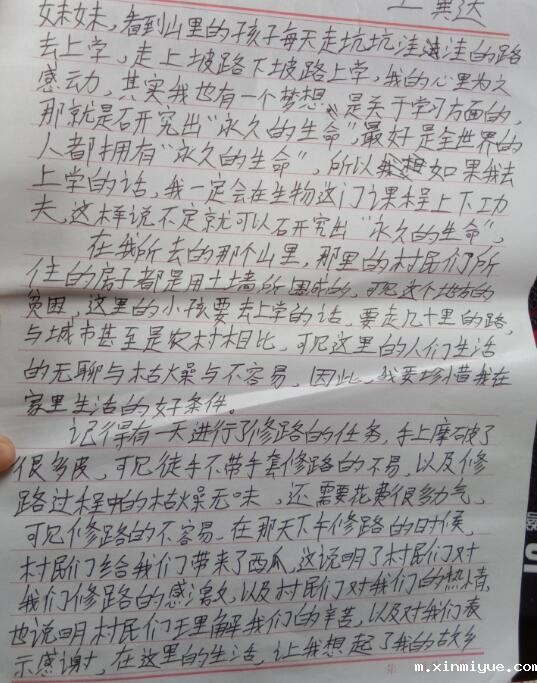 王奥达
妹妹，看到山里的孩子每天走坑坑洼洼的路
去上学，走上坡路下坡路上学，我的心里为之
感动，其实我也有一个梦想，是关于学习方面的，
那就是石开究出“永久的生命”，最好是全世界的
人都拥有“永久的生命”，所以我想如果我去
上学的话，我一定会在生物这门课程上下功
夫，这样说不定就可以石开究出“永久的生命”，
在我所去的那个山里，那里的村民们所
住的房子都是用土墙所围成的，可见这个地方的
贫困，这里的小孩要去上学的话，要走几十里的路，
与城市甚至是农村相比，可见这里的人们生活
的无聊与枯燥与不容易，因此，我要珍惜我在
家里生活的好条件。
记得有一天进行了修路的任务，手上摩破了
很多皮，可见徒手不带手套修路的不易，以及修
路过程中的枯燥无味，还需要花费很多力气，
可见修路的不容易，在那天下午修路的时候，
村民们给我们带来了西瓜，这说明了村民们对
我们修路的感激，以及村民们对我们的热情，
也说明村民们王里解我们的辛苦，以及对我们表
示感谢，在这里的生活，让我想起了我的故乡
第
m.xinmiyue.com